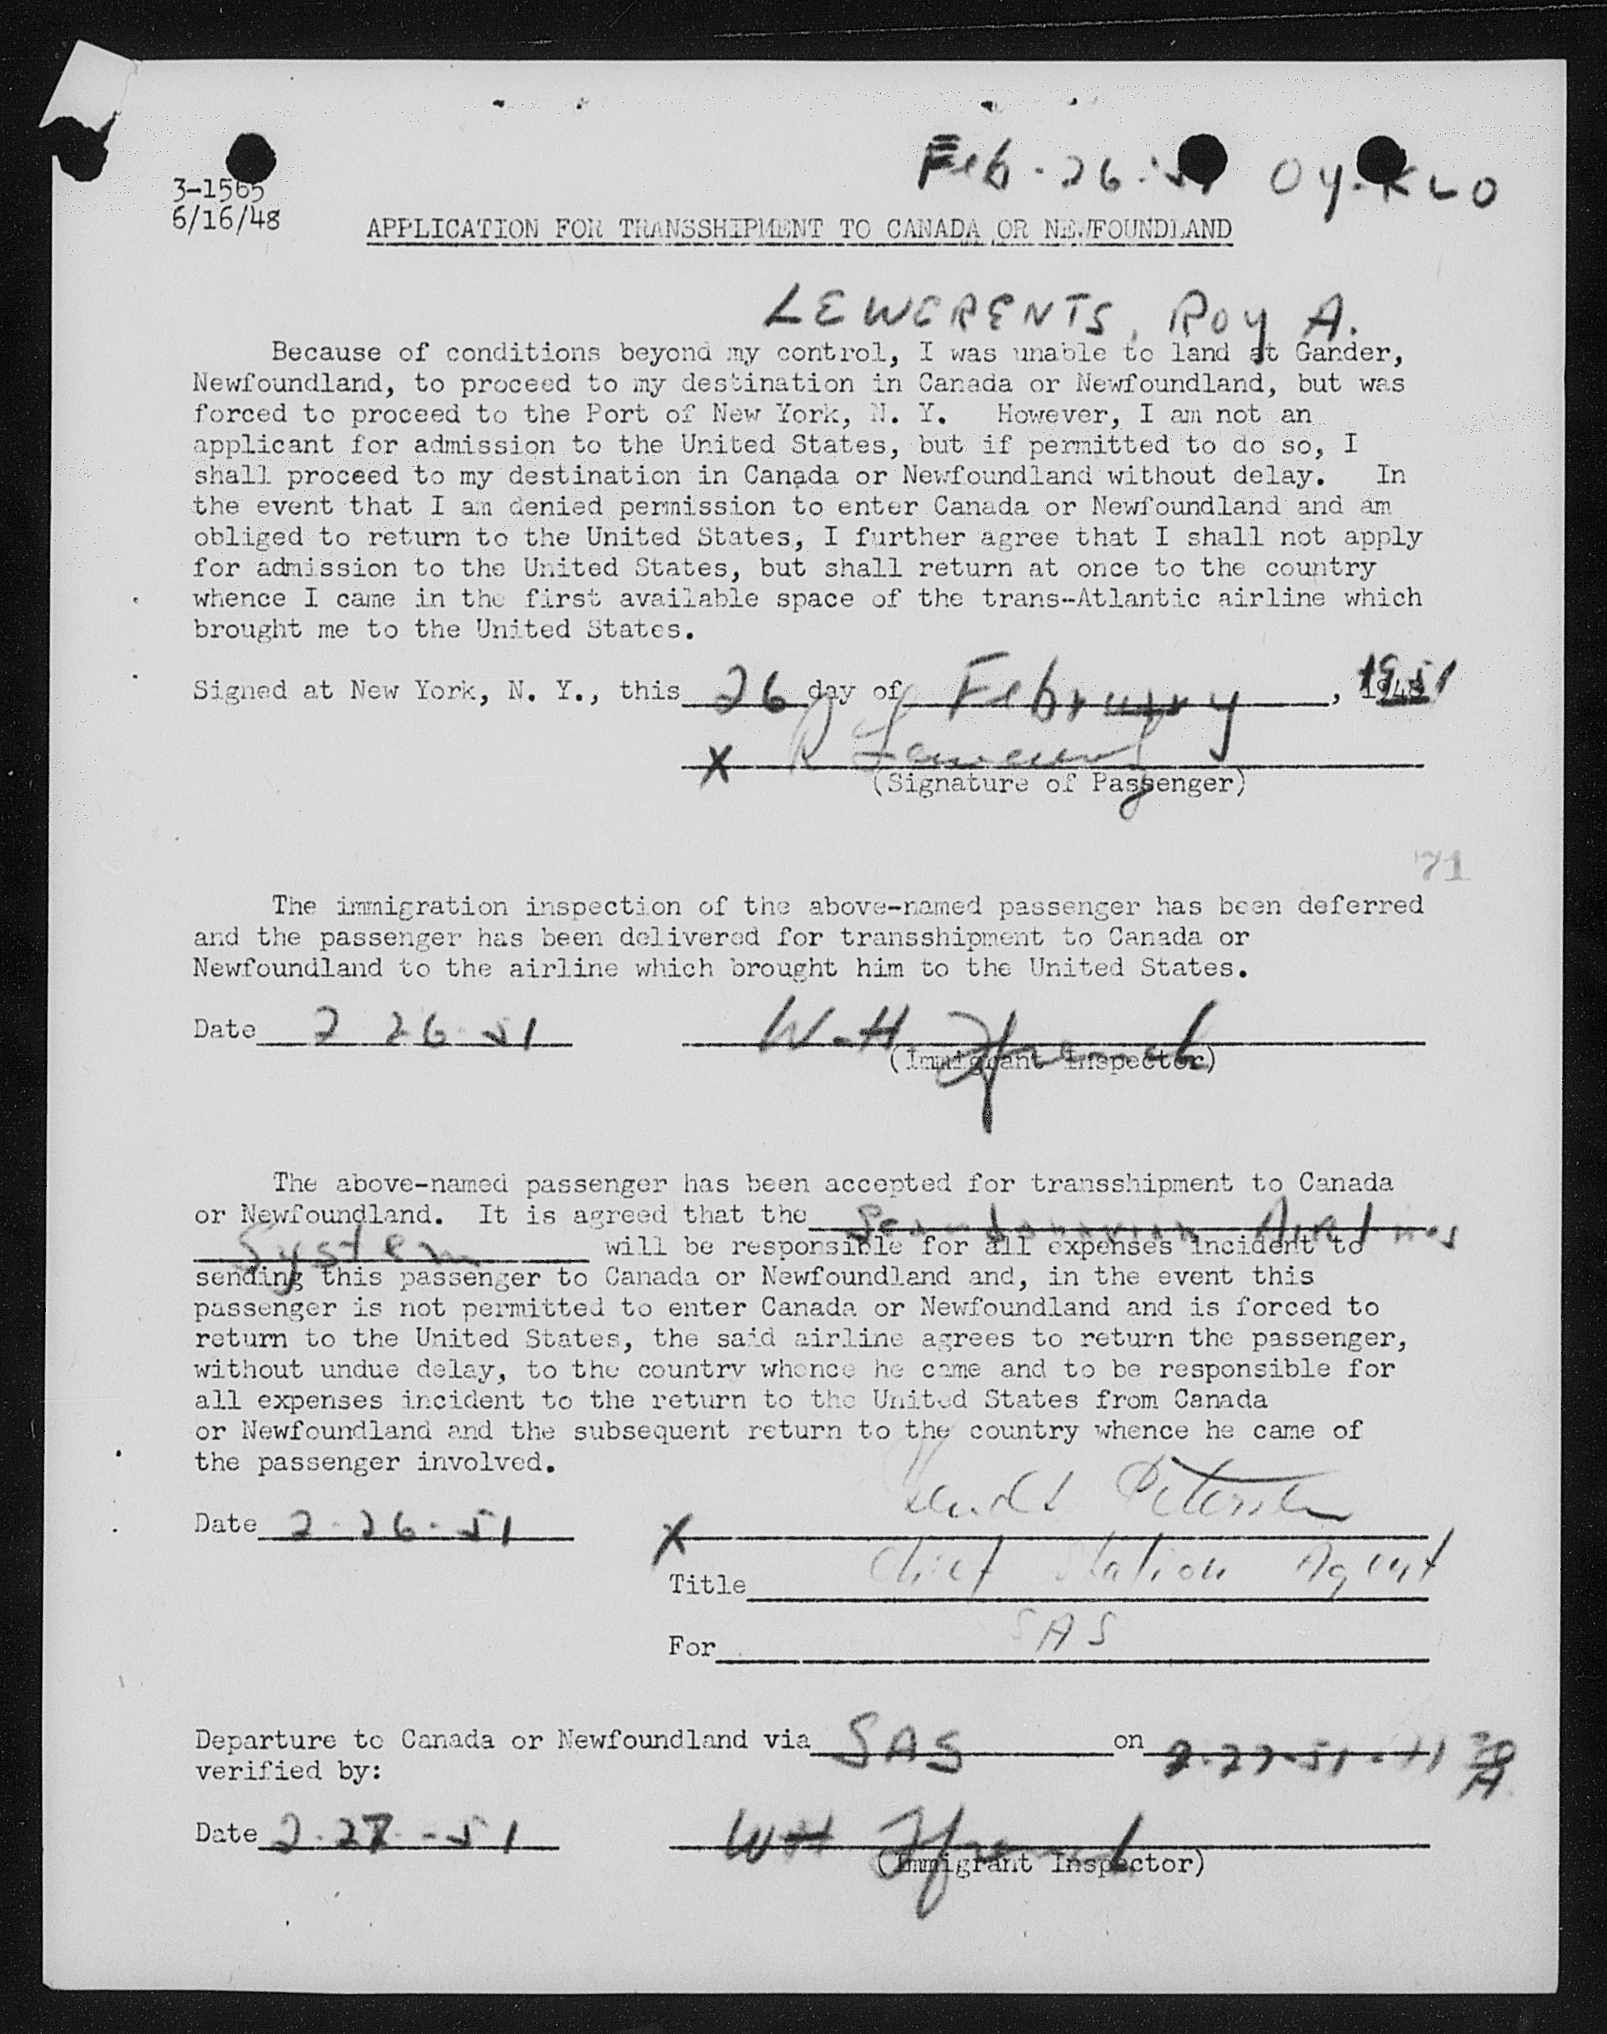 Feb-26-51 Oy-KLO
3-1565
6/16/48
APPLICATION FOR TRANSSHIPMENT TO CANADA OR NEWFOUNDLAND
LEWERENTS, Roy A.
Because of conditions beyond my control, I was unable to land at Gander,
Newfoundland, to proceed to my destination in Canada or Newfoundland, but was
forced to proceed to the Port of New York, N. Y. However, I am not an
applicant for admission to the United States, but if permitted to do so, I
shall proceed to my destination in Canada or Newfoundland without delay. In
the event that I am denied permission to enter Canada or Newfoundland and am
obliged to return to the United States, I further agree that I shall not apply
for admission to the United States, but shall return at once to the country
whence I came in the first available space of the trans-Atlantic airline which
brought me to the United States.
Signed at New York, N. Y., this 26 day of February, 1951
X R
(Signature of Passenger)
71
The immigration inspection of the above-named passenger has been deferred
and the passenger has been delivered for transshipment to Canada or
Newfoundland to the airline which brought him to the United States.
Date 2 26 51 W.H
(Immigrant Inspector)
The above-named passenger has been accepted for transshipment to Canada
or Newfoundland. It is agreed that the Scandanavian Airlines
System will be responsible for all expenses incident to
sending this passenger to Canada or Newfoundland and, in the event this
passenger is not permitted to enter Canada or Newfoundland and is forced to
return to the United States, the said airline agrees to return the passenger,
without undue delay, to the country whence he came and to be responsible for
all expenses incident to the return to the United States from Canada
or Newfoundland and the subsequent return to the country whence he came of
the passenger involved.
Date 2-26-51 X Petersen
Title Chief Station Agent
For SAS
Departure to Canada or Newfoundland via SAS on 2-27-51
verified by:
Date 2-27-51 WH
(Immigrant Inspector)